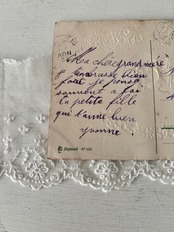 Ma chère grand mère
je t'embrasse bien
fort je pense
souvent a toi
ta petite fille
qui t'aime bien
yvonne